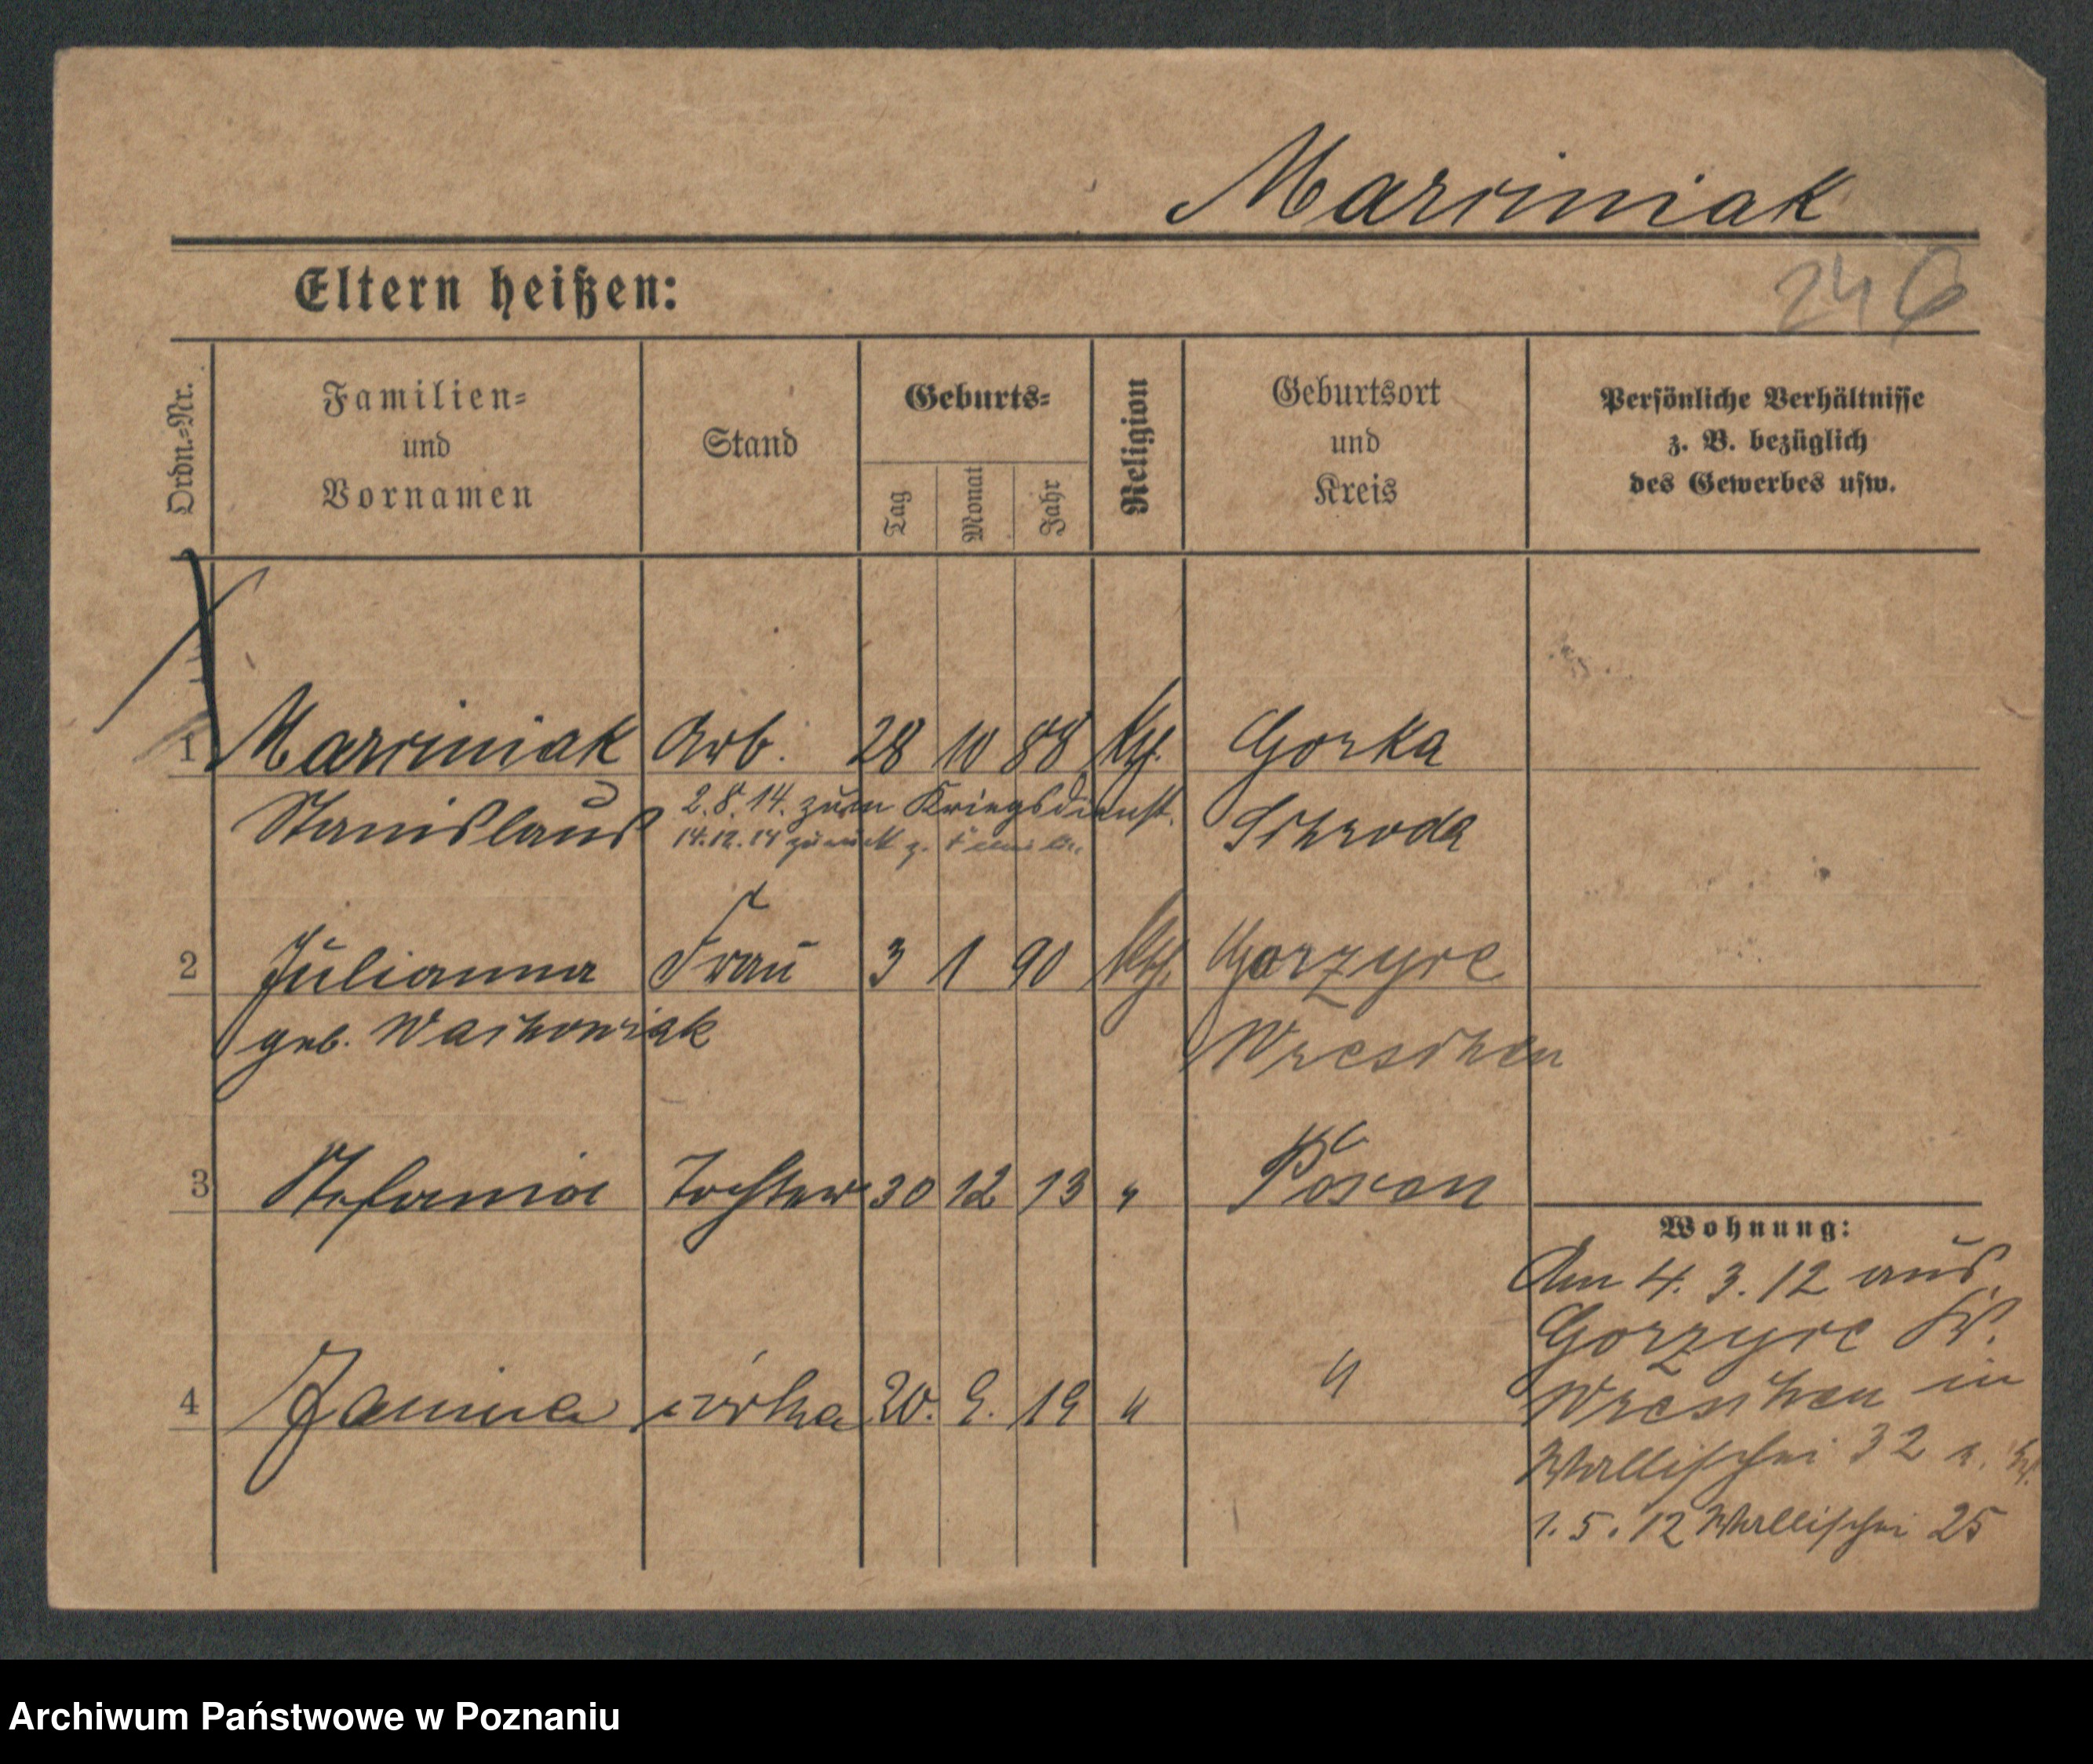 Marciniak
Eltern heißen:
246
Ordn.-Nr.
Familien-
und
Vornamen
Stand
Geburts-
Tag
Monat
Jahr
Religion
Geburtsort
und
Kreis
Persönliche Verhältnisse
z. B. bezüglich
des Gewerbes usw.
1 Marciniak Arb. 28 10 88 kth. Gorka
Stanislaus 2.8.14. zum Kriegsdienst. Schroda
14.12.14 zurück z.
2 Julianna Frau 3 1 90 kth. Gorzyce
geb. Wachowiak Wreschen
3 Stefania Tochter 30 12 13 " Posen
4 Janina córka 20. 9. 19 " "
Wohnung:
Am 4.3.12 aus
Gorzyce Kr.
Wreschen in
Wallischei 32
1.5.12 Wallischei 25
Archiwum Państwowe w Poznaniu